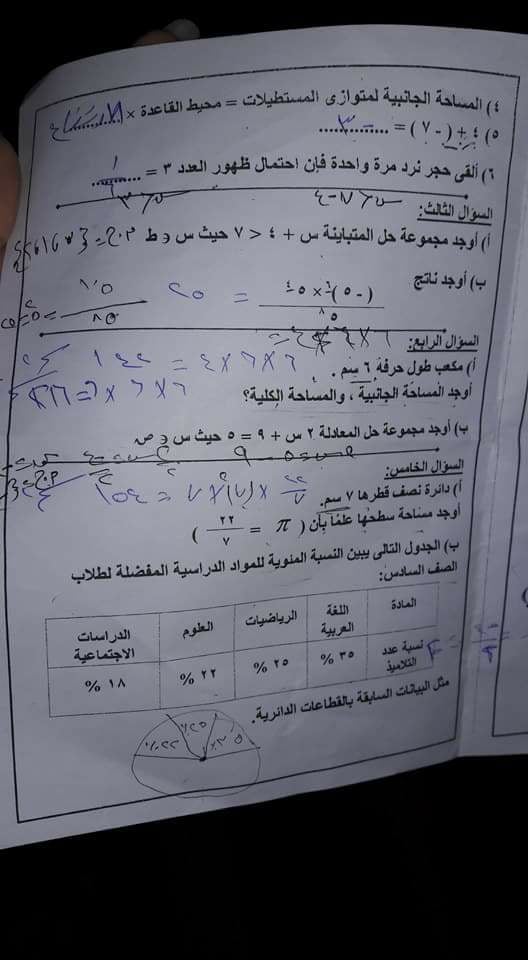 ٤) المساحة الجانبية لمتوازى المستطيلات = محيط القاعدة × الارتفاع
٥) ٤ + (- ٧) = - ٣
٦) ألقى حجر نرد مرة واحدة فإن احتمال ظهور العدد ٣ = ١/٦
س < ٧ - ٤
س < ٣
السؤال الثالث:
أ) أوجد مجموعة حل المتباينة س + ٤ < ٧ حيث س ∈ ط
ب) أوجد ناتج
(- ٥)٦ × ٥٤
٥٨
السؤال الرابع:
أ) مكعب طول حرفة ٦ سم .
٦ × ٦ × ٤ = ١٤٤
أوجد المساحة الجانبية ، والمساحة الكلية؟
٦ × ٦ × ٦ =
ب) أوجد مجموعة حل المعادلة ٢ س + ٩ = ٥ حيث س ∈ ص
السؤال الخامس:
أ) دائرة نصف قطرها ٧ سم.
٢٢/٧ × (٧)٢ = ١٥٤
أوجد مساحة سطحها علماً بأن ( π = ٢٢/٧ )
ب) الجدول التالى يبين النسبة المئوية للمواد الدراسية المفضلة لطلاب
الصف السادس:
المادة اللغة العربية الرياضيات العلوم الدراسات الاجتماعية
نسبة عدد التلاميذ ٣٥ % ٢٥ % ٢٢ % ١٨ %
مثل البيانات السابقة بالقطاعات الدائرية.
٢٢٪ ٢٥٪ ٣٥٪